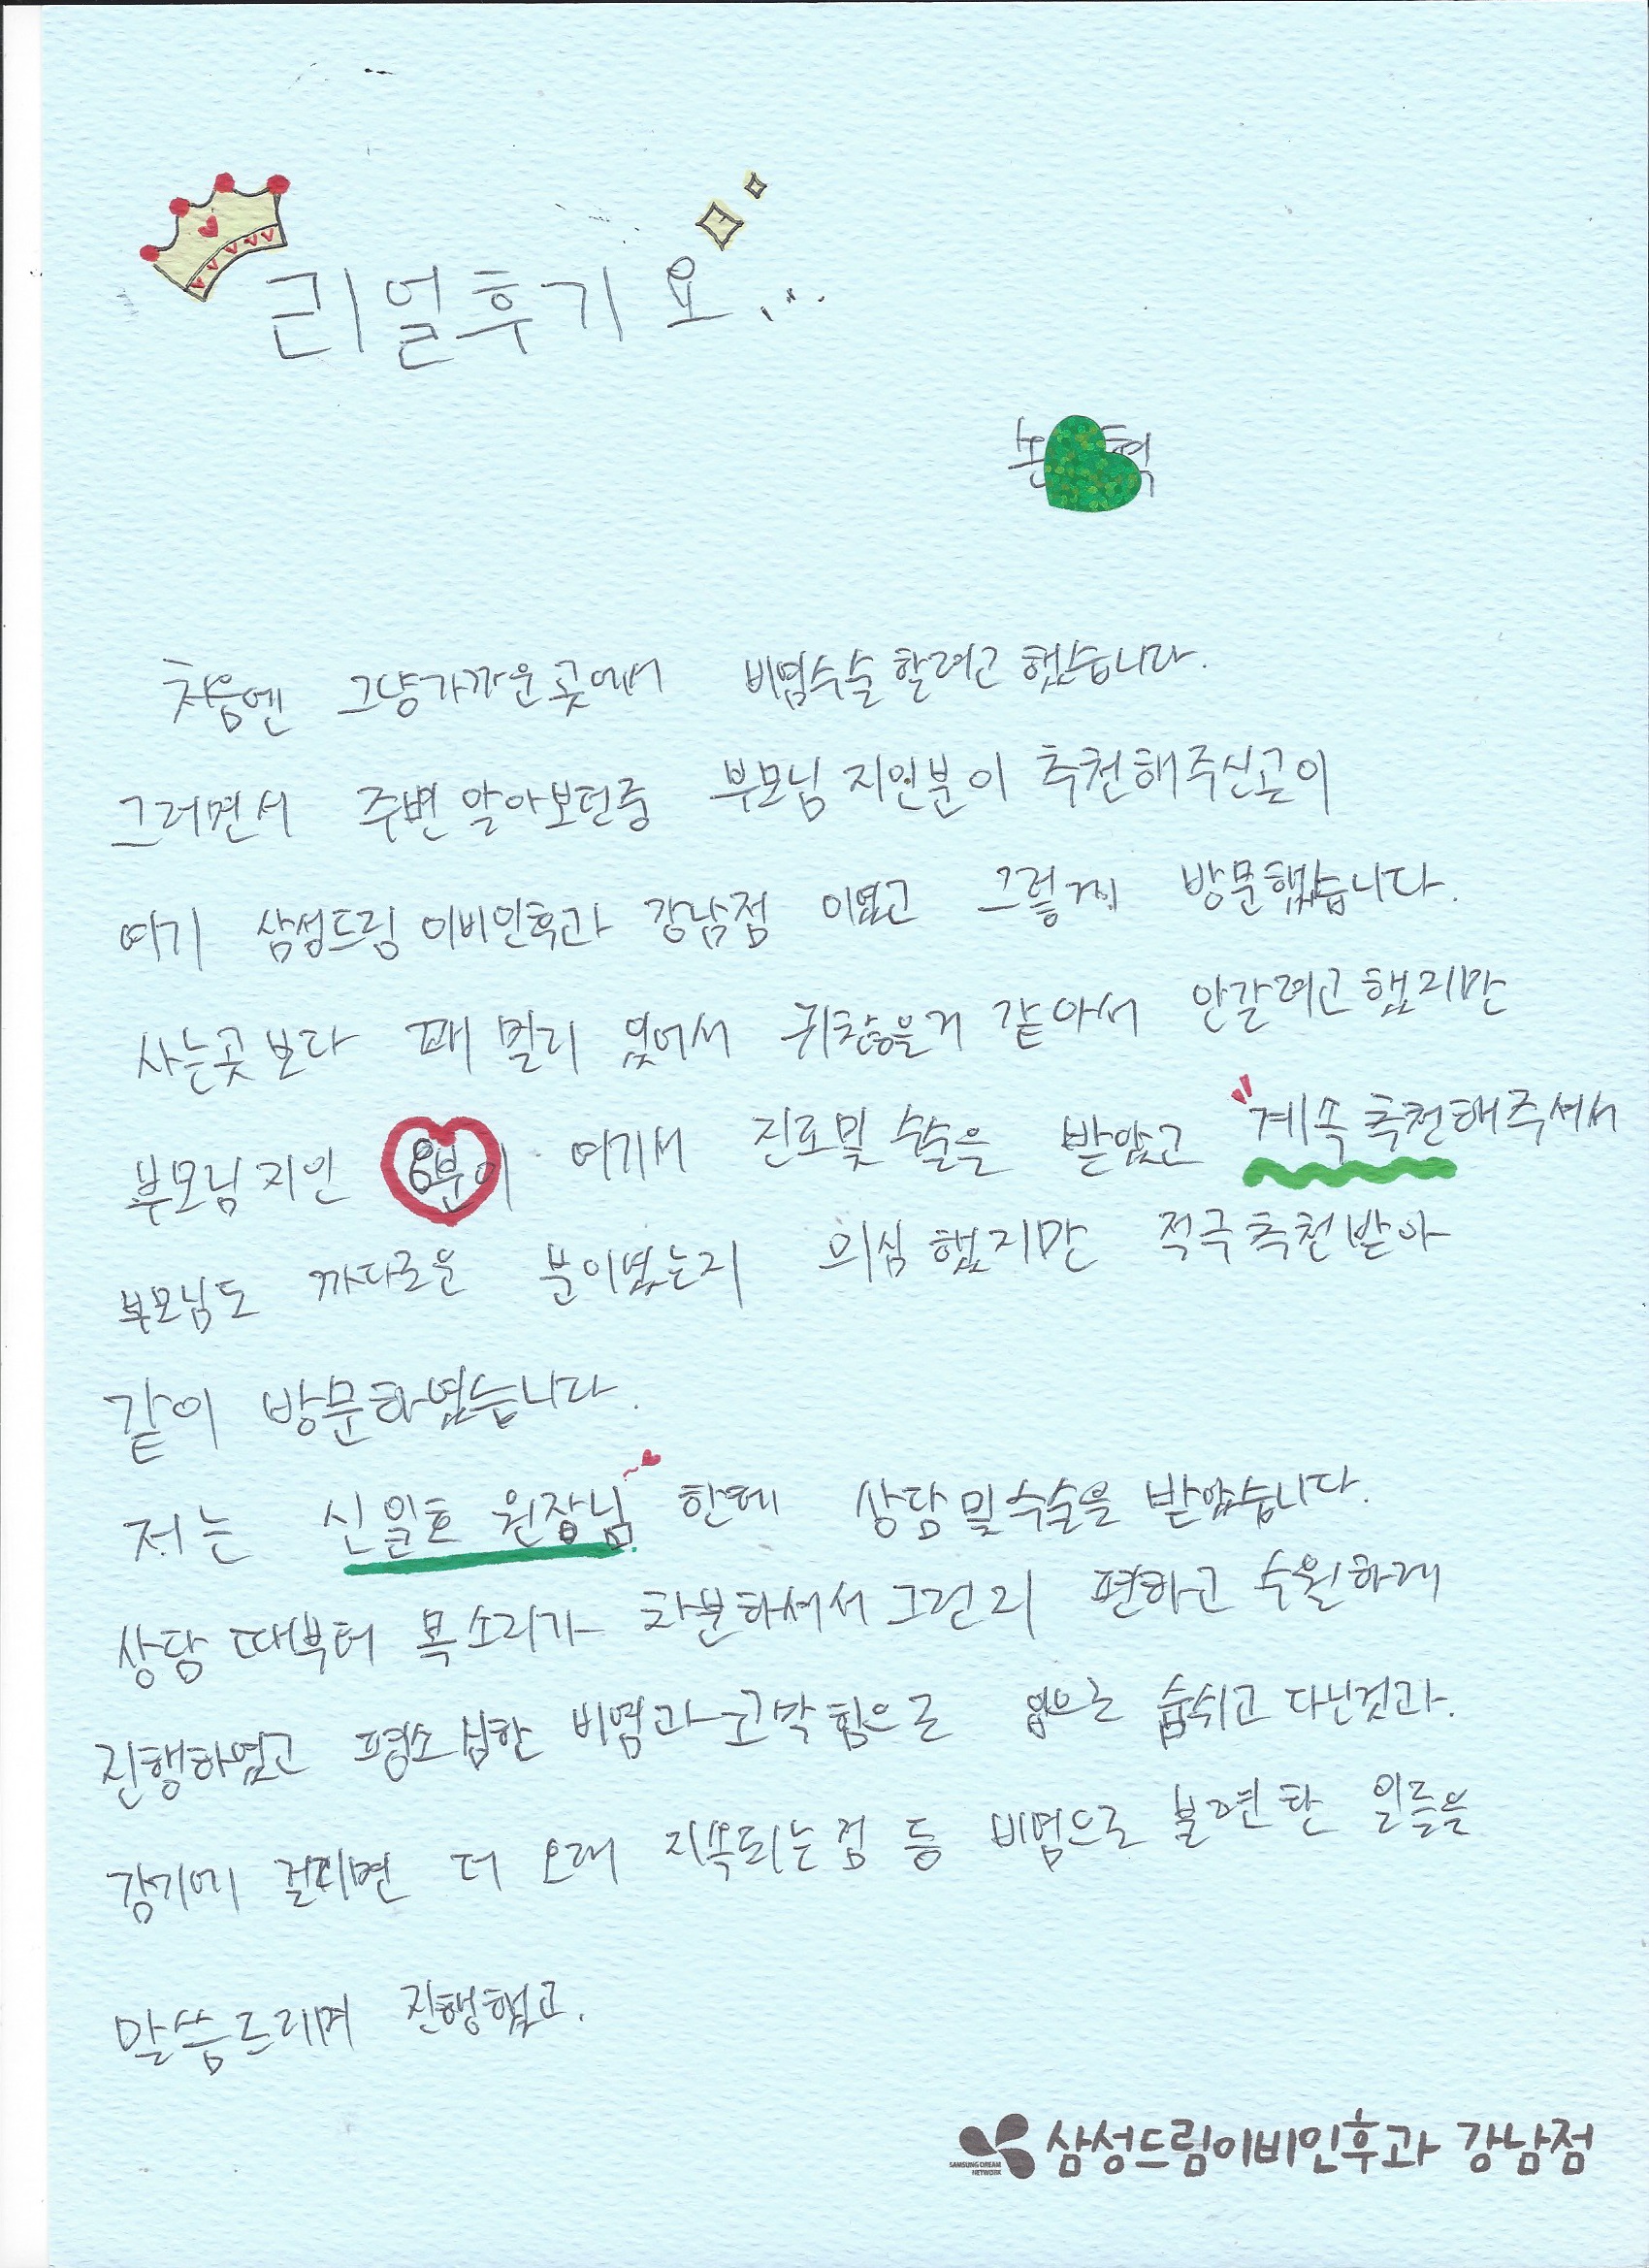 리얼후기요...
혁
처음엔 그냥가까운곳에서 비염수술할려고 했습니다.
그러면서 주변알아보던중 부모님지인분이 추천해주신곳이
여기 삼성드림이비인후과 강남점 이였고 그렇게 방문했습니다.
사는곳보다 꽤 멀리 있어서 귀찮을거 같아서 안갈려고했지만
부모님지인 8분이 여기서 진료및수술을 받았고 계속추천해주셔서
부모님도 까다로운 분이였는지 의심했지만 적극추천받아
같이 방문하였습니다.
저는 신일호 원장님 한테 상담및수술을 받았습니다.
상담때부터 목소리가 차분하셔서그런지 편하고 수월하게
진행하였고 평소심한 비염과 입으로 숨쉬고다닌것과.
감기에 걸리면 더 오래 지속되는점 등 비염으로 불편한 일들을
말씀드리며 진행했고.
삼성드림이비인후과 강남점
SAMSUNG DREAM
NETWORK